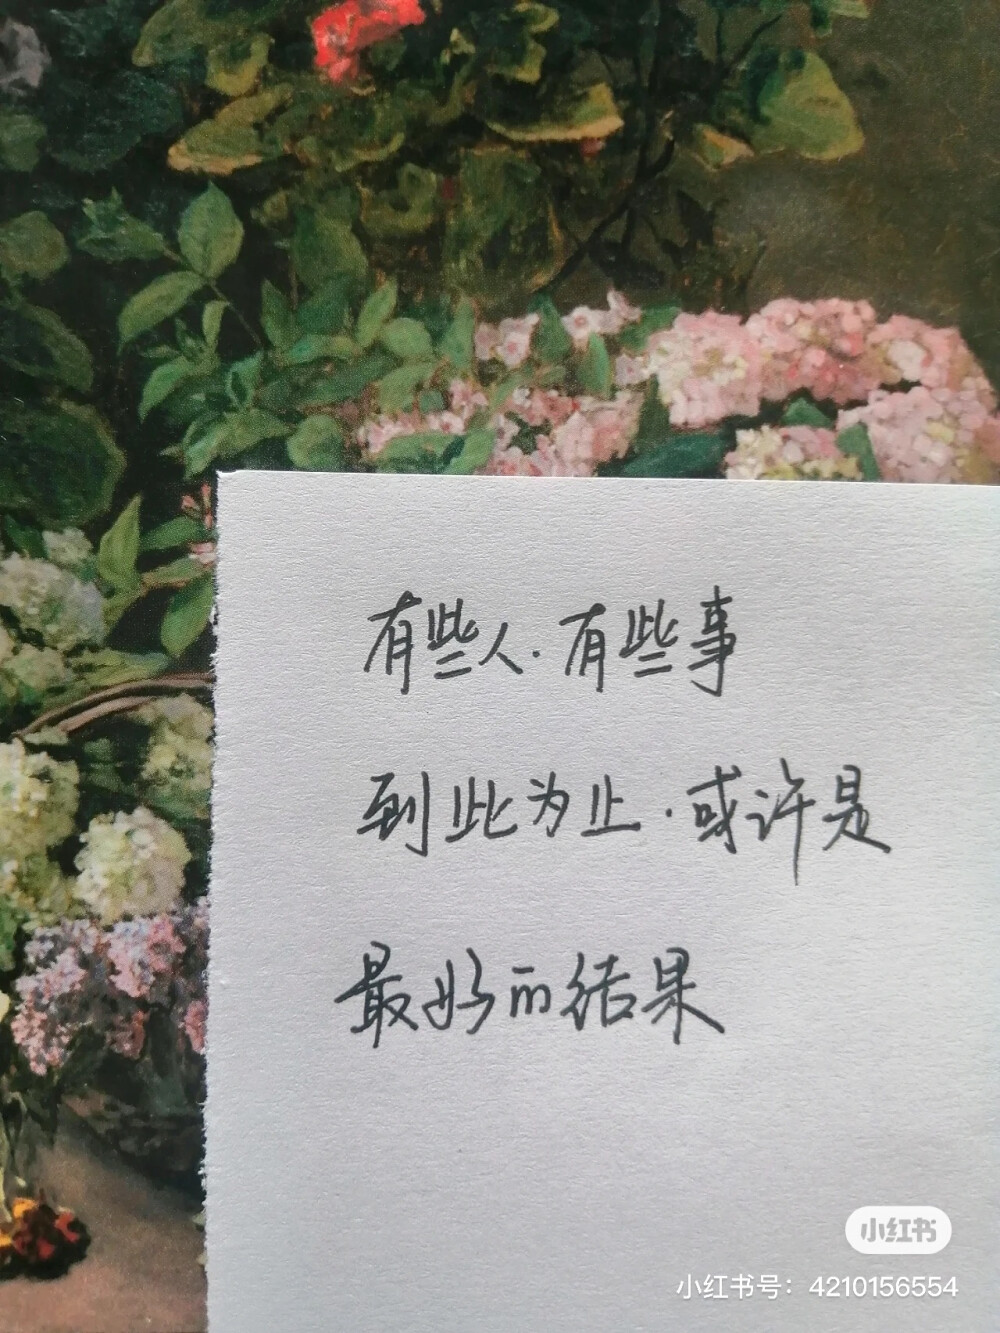 有些人.有些事
到此为止.或许是
最好的结果
小红书
小红书号：4210156554